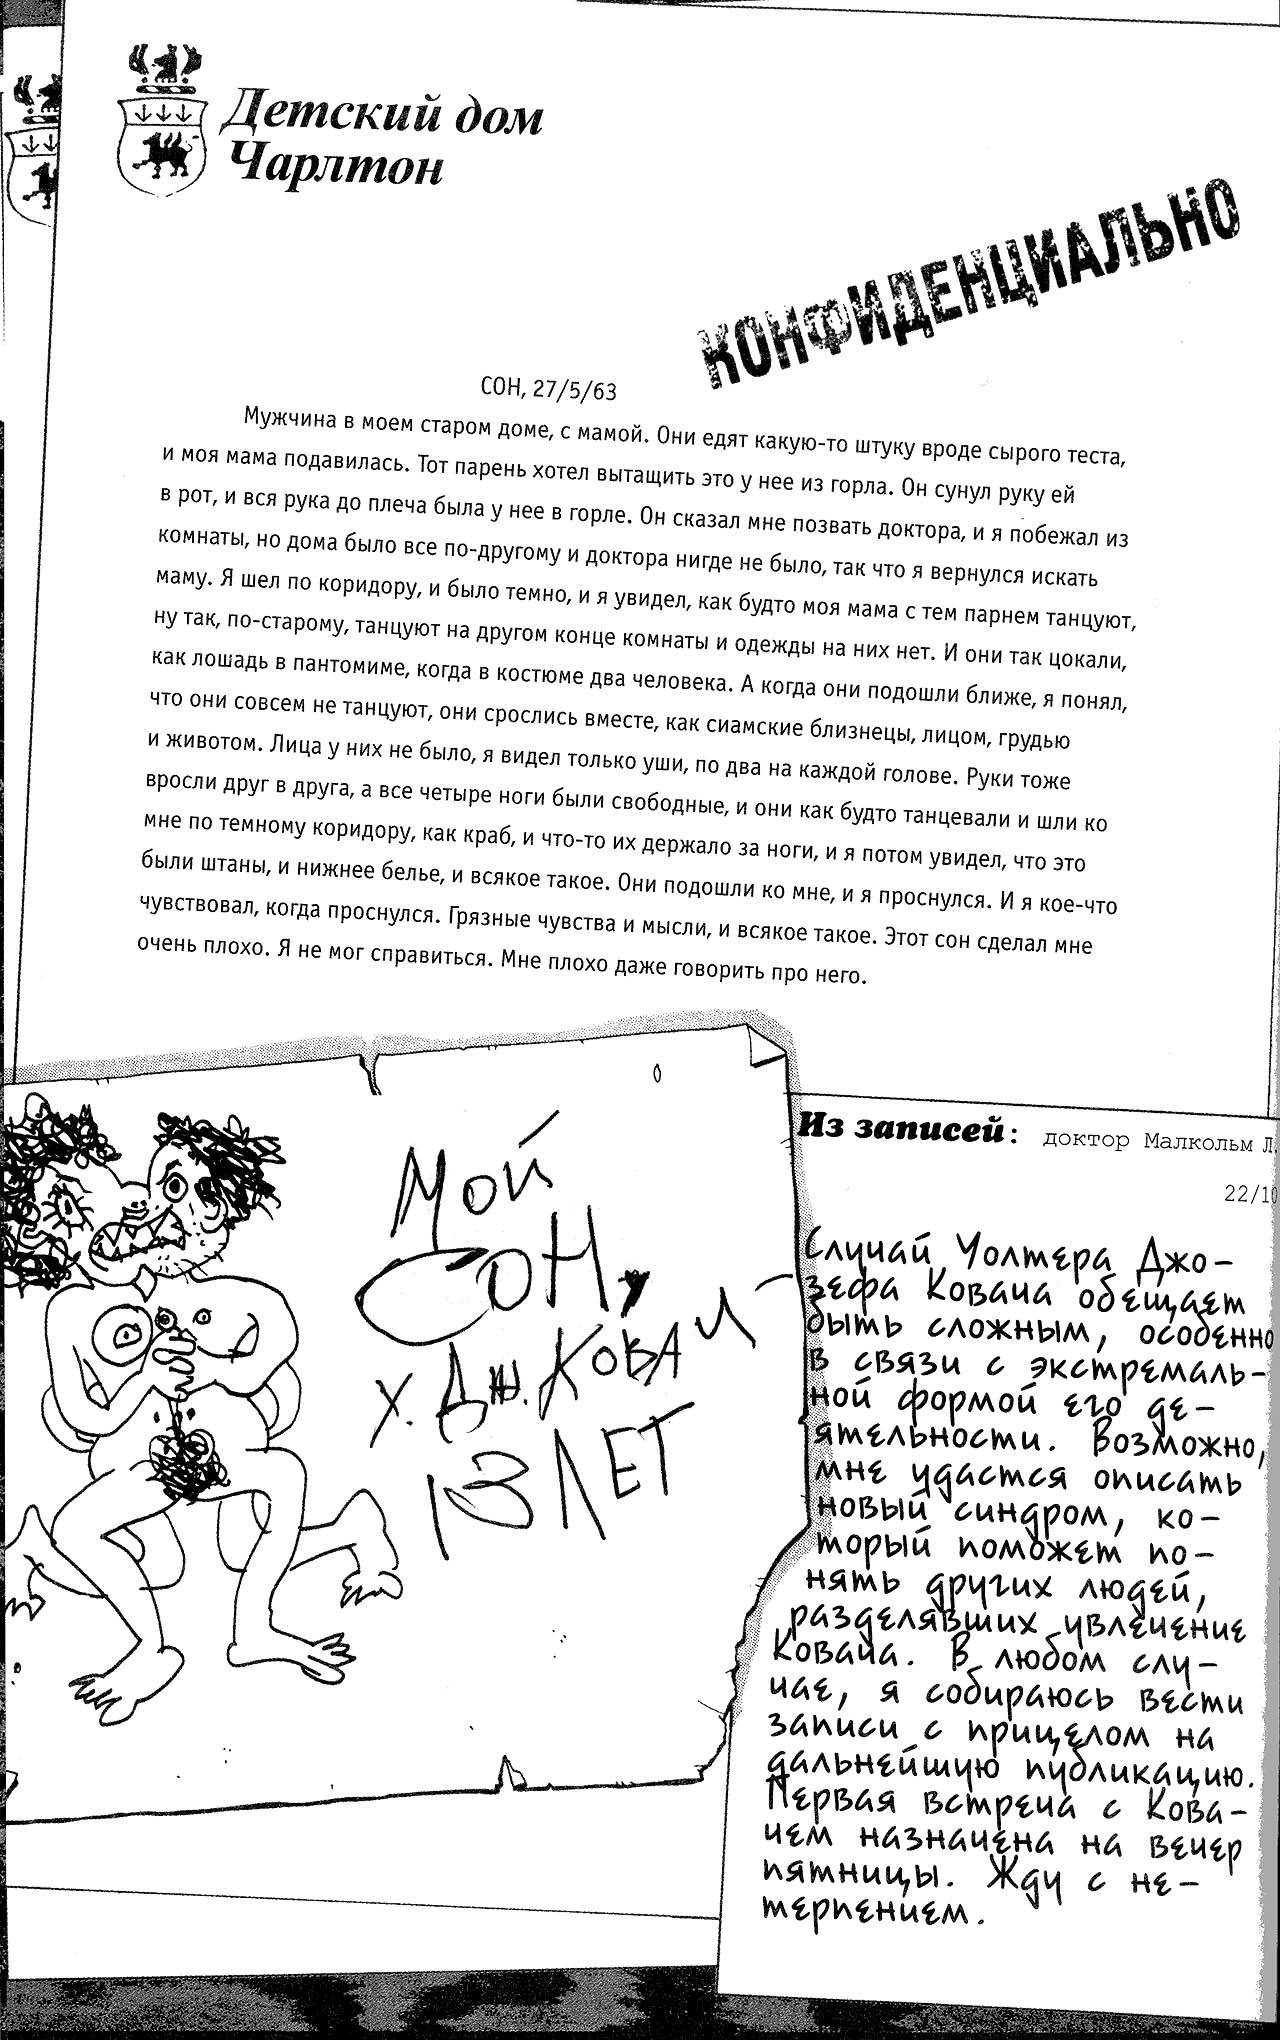 Детский дом
Чарлтон
КОНФИДЕНЦИАЛЬНО
СОН, 27/5/63
Мужчина в моем старом доме, с мамой. Они едят какую-то штуку вроде сырого теста,
и моя мама подавилась. Тот парень хотел вытащить это у нее из горла. Он сунул руку ей
в рот, и вся рука до плеча была у нее в горле. Он сказал мне позвать доктора, и я побежал из
комнаты, но дома было все по-другому и доктора нигде не было, так что я вернулся искать
маму. Я шел по коридору, и было темно, и я увидел, как будто моя мама с тем парнем танцуют,
ну так, по-старому, танцуют на другом конце комнаты и одежды на них нет. И они так цокали,
как лошадь в пантомиме, когда в костюме два человека. А когда они подошли ближе, я понял,
что они совсем не танцуют, они срослись вместе, как сиамские близнецы, лицом, грудью
и животом. Лица у них не было, я видел только уши, по два на каждой голове. Руки тоже
вросли друг в друга, а все четыре ноги были свободные, и они как будто танцевали и шли ко
мне по темному коридору, как краб, и что-то их держало за ноги, и я потом увидел, что это
были штаны, и нижнее белье, и всякое такое. Они подошли ко мне, и я проснулся. И я кое-что
чувствовал, когда проснулся. Грязные чувства и мысли, и всякое такое. Этот сон сделал мне
очень плохо. Я не мог справиться. Мне плохо даже говорить про него.
Мой
Сон,
Х. Дж. Ковач
13 ЛЕТ
Из записей: доктор Малкольм Л.
22/10
Случай Уолтера Джо-
зефа Ковача обещает
быть сложным, особенно
в связи с экстремаль-
ной формой его де-
ятельности. Возможно,
мне удастся описать
новый синдром, ко-
торый поможет по-
нять других людей,
разделявших увлечение
Ковача. В любом слу-
чае, я собираюсь вести
записи с прицелом на
дальнейшую публикацию.
Первая встреча с Кова-
чем назначена на вечер
пятницы. Жду с не-
терпением.